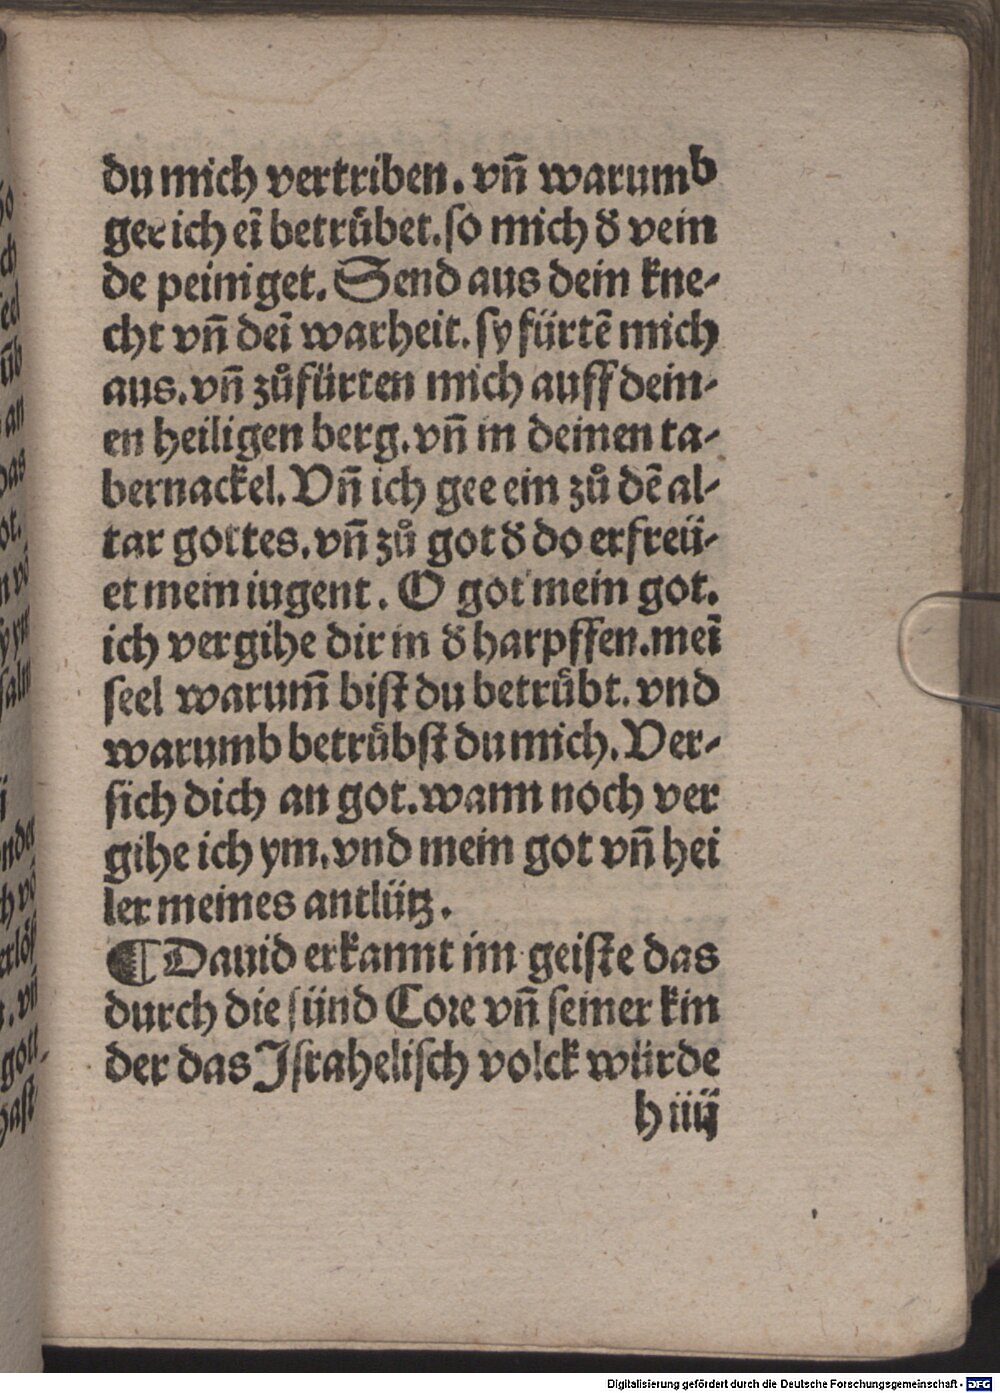 du mich vertriben. vñ warumb
gee ich eī betruͤbet. so mich ð vein
de peiniget. Send aus dein kne-
cht vñ deī warheit. sy fürtē mich
aus. vñ zůfürten mich auff dein-
en heiligen berg. vñ in deinen ta-
bernackel. Vñ ich gee ein zů dē al-
tar gottes. vñ zů got ð do erfreü-
et mein iugent. O got mein got.
ich vergihe dir in ð harpffen. meī
seel warum̄ bist du betruͤbt. vnd
warumb betruͤbst du mich. Ver-
sich dich an got. wann noch ver
gihe ich ym. vnd mein got vñ hei
ler meines antlütz.
¶ Dauid erkannt im geiste das
durch die sünd Coꝛe vñ seiner kin
der das Israhelisch volck würde
h iiij
Digitalisierung gefördert durch die Deutsche Forschungsgemeinschaft - DFG